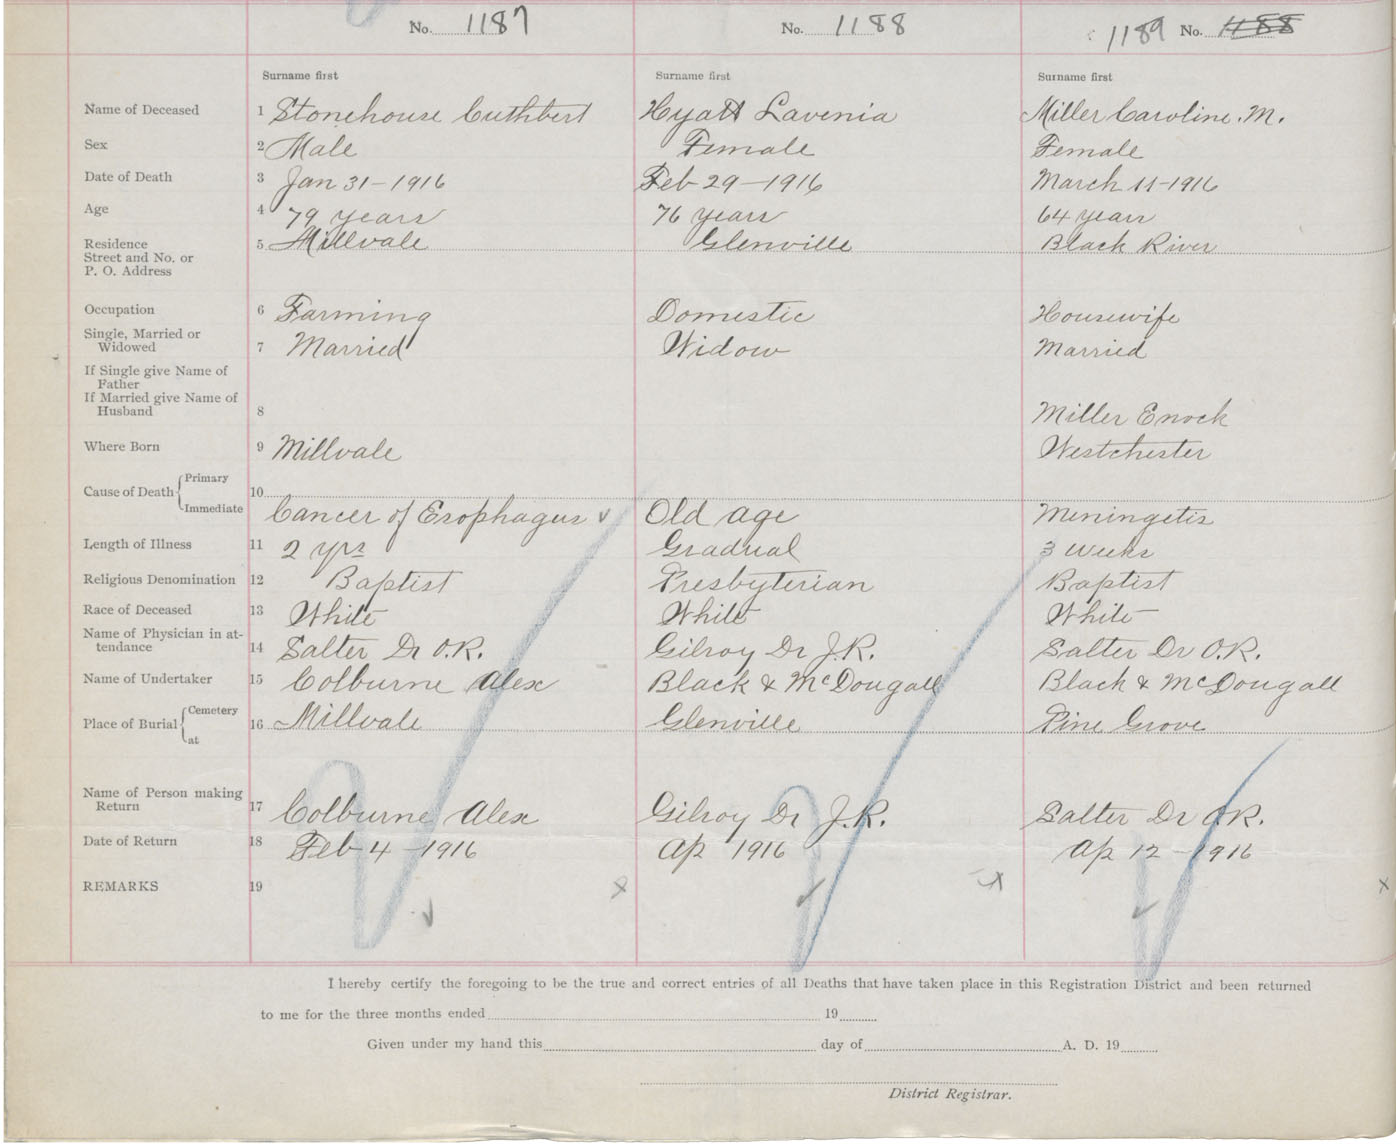 No. 1187 No. 1188 1189 No. 1188
Surname first Surname first Surname first
Name of Deceased 1 Stonehouse Cuthbert Hyatt Lavenia Miller Caroline. M.
Sex 2 Male Female Female
Date of Death 3 Jan 31-1916 Feb 29-1916 March 11-1916
Age 4 79 years 76 years 64 years
Residence 5 Millvale Glenville Black River
Street and No. or
P. O. Address
Occupation 6 Farming Domestic Housewife
Single, Married or
Widowed 7 Married Widow Married
If Single give Name of
Father
If Married give Name of
Husband 8 Miller Enock
Where Born 9 Millvale Westchester
Primary
Cause of Death 10
Immediate Cancer of Esophagus Old age Meningetis
Length of Illness 11 2 yrs Gradual 3 weeks
Religious Denomination 12 Baptist Presbyterian Baptist
Race of Deceased 13 White White White
Name of Physician in at-
tendance 14 Salter Dr O.R. Gilroy Dr J.R. Salter Dr O.R.
Name of Undertaker 15 Colburne Alex Black & McDougall Black & McDougall
Cemetery
Place of Burial 16 Millvale Glenville Pine Grove
at
Name of Person making
Return 17 Colburne Alex Gilroy Dr J.R. Salter Dr O.R.
Date of Return 18 Feb 4-1916 Ap 1916 Ap 12-1916
REMARKS 19 x x x
I hereby certify the foregoing to be the true and correct entries of all Deaths that have taken place in this Registration District and been returned
to me for the three months ended 19
Given under my hand this day of A. D. 19
District Registrar.